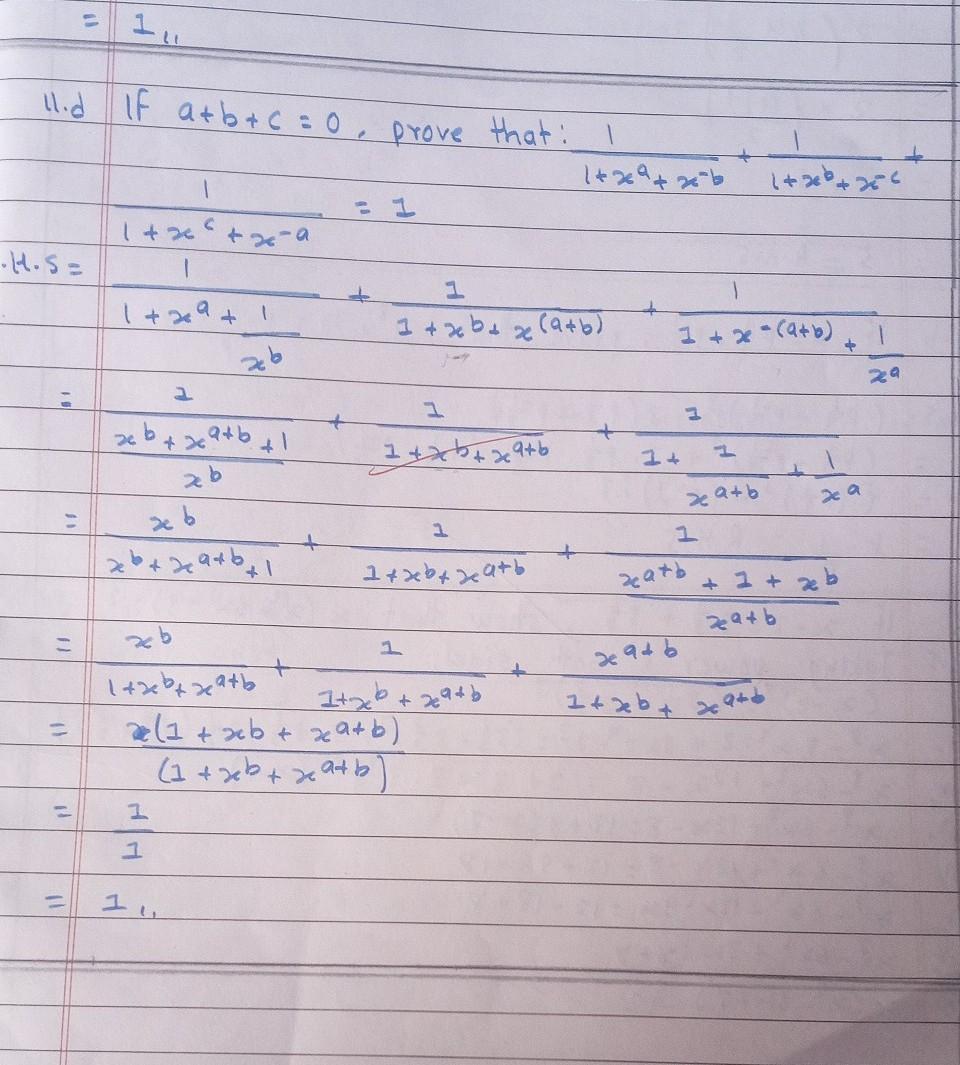 = 1,,
11.d If a+b+c = 0, prove that: 1/(1+x^a+x^-b) + 1/(1+x^b+x^-c) +
1/(1+x^c+x^-a) = 1
.H.S = 1/(1+x^a+1/x^b) + 1/(1+x^b+x^(a+b)) + 1/(1+x^-(a+b)+1/x^a)
= 1/((x^b+x^a+b+1)/x^b) + 1/(1+x^b+x^a+b) + 1/(1+1/x^a+b+1/x^a)
= x^b/(x^b+x^a+b+1) + 1/(1+x^b+x^a+b) + 1/((x^a+b+1+x^b)/x^a+b)
= x^b/(1+x^b+x^a+b) + 1/(1+x^b+x^a+b) + x^a+b/(1+x^b+x^a+b)
= (1+x^b+x^a+b)/(1+x^b+x^a+b)
= 1/1
= 1,,